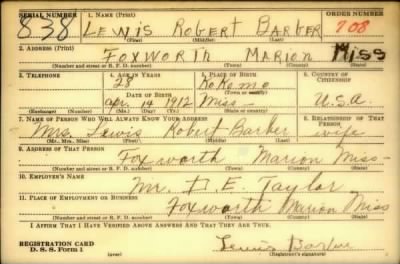 SERIAL NUMBER 1. NAME (Print) ORDER NUMBER
838 LEWIS ROBERT BARBER 708
(First) (Middle) (Last)
2. ADDRESS (Print)
FOXWORTH MARION MISS
(Number and street or R. F. D. number) (Town) (County) (State)
3. TELEPHONE 4. AGE IN YEARS 5. PLACE OF BIRTH 6. COUNTRY OF CITIZENSHIP
28 KoKomo
DATE OF BIRTH (Town or county)
Apr. 14 1912 Miss- U.S.A.
(Exchange) (Number) (Mo.) (Day) (Yr.) (State or country)
7. NAME OF PERSON WHO WILL ALWAYS KNOW YOUR ADDRESS 8. RELATIONSHIP OF THAT PERSON
Mrs. Lewis Robert Barber wife
(Mr., Mrs., Miss) (First) (Middle) (Last)
9. ADDRESS OF THAT PERSON
Foxworth Marion Miss-
(Number and street or R. F. D. number) (Town) (County) (State)
10. EMPLOYER'S NAME
Mr. D. E. Taylor
11. PLACE OF EMPLOYMENT OR BUSINESS
Foxworth Marion Miss
(Number and street or R. F. D. number) (Town) (County) (State)
I AFFIRM THAT I HAVE VERIFIED ABOVE ANSWERS AND THAT THEY ARE TRUE.
REGISTRATION CARD
D. S. S. Form 1 Lewis Barber
(Registrant's signature)